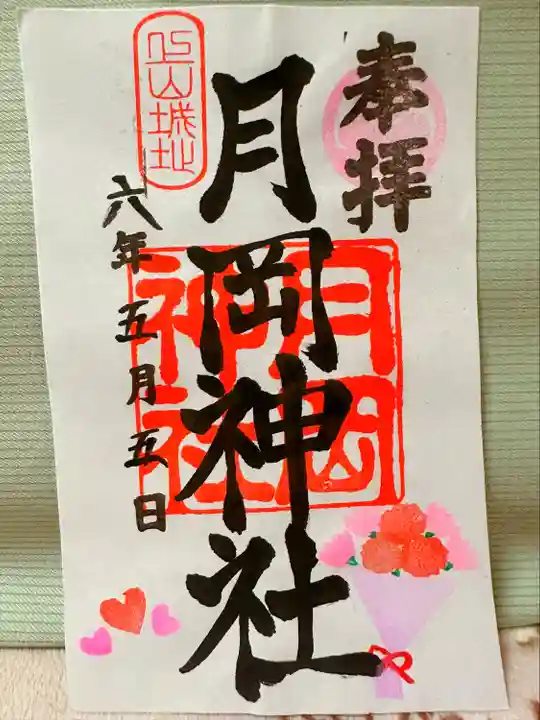 奉拝
月岡神社
月岡神社
六年五月五日